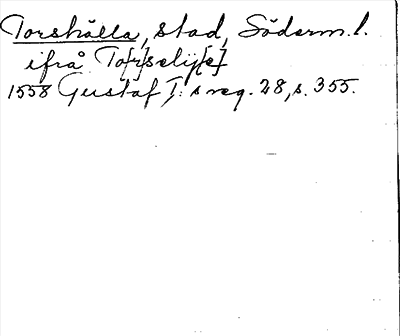 Torshälla, stad, Söderm. l.
ifrå To[r]selij[e]
1558 Gustaf I:s reg. 28, s. 355.